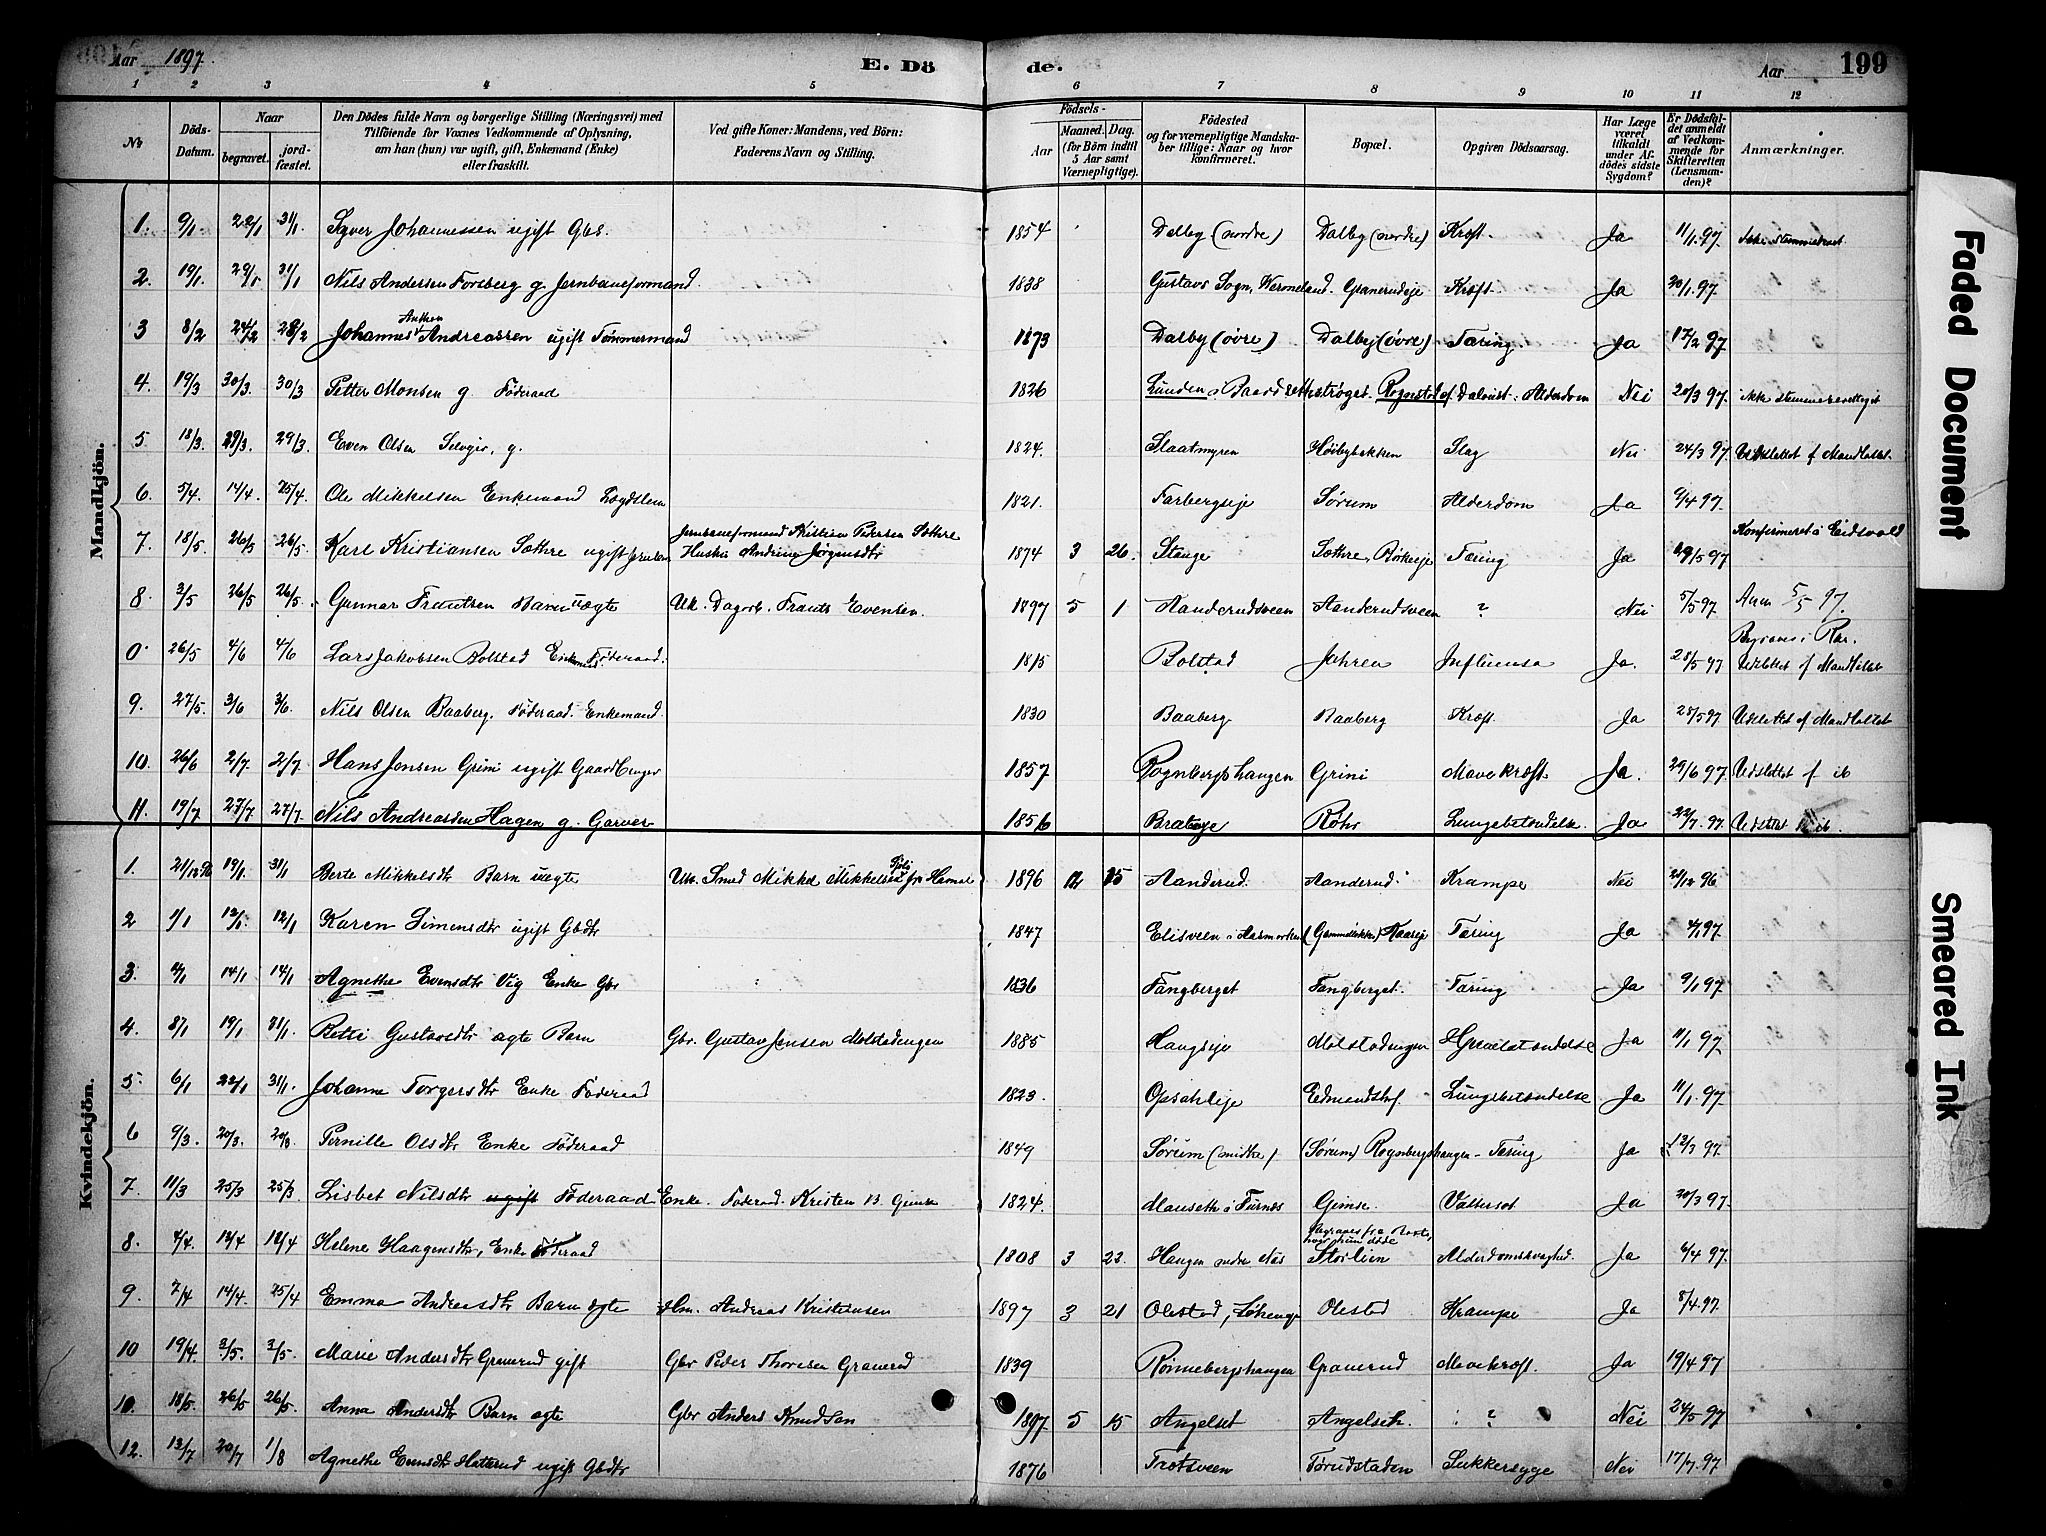 Aar 1897. E. Dö de. Aar 199
1 2 3 4 5 6 7 8 9 10 11 12
Nr. Döds-Datum. Naar begravet. jordfæstet. Den Dödes fulde Navn og borgerlige Stilling (Næringsvei) med Tilföiende for Voxnes Vedkommende af Oplysning, om han (hun) var ugift, gift, Enkemand (Enke) eller fraskilt. Ved gifte Koner: Mandens, ved Börn: Faderens Navn og Stilling. Födsels- Aar Maaned. Dag. (for Börn indtil 5 Aar samt Værnepligtige). Födested og for værnepligtige Mandskaber tillige: Naar og hvor konfirmeret. Bopæl. Opgiven Dödsaarsag. Har Læge været tilkaldt under Afdödes sidste Sygdom? Er Dödsfaldet anmeldt af Vedkommende for Skifteretten (Lensmanden)? Anmærkninger.
Mandkjön.
1. 9/1 22/1 31/1 Syver Johannessen ugift Gbs. 1854 Dalby (nordre) Dalby (nordre) Kræft. Ja 11/1 97.
2. 19/1 29/1 31/1 Nils Andersen Forsberg g. Jernbaneformand 1838 Gustavs Sogn, Vermeland. Granerudeje Kræft. Ja 20/1 97.
3 8/2 24/2 28/2 Johannes Anthon Andreassen ugift Tømmermand 1873 Dalby (øvre) Dalby (øvre) Tæring. Ja 17/2 97
4. 19/3 30/3 30/3 Petter Monsen g. Føderaad 1826 Lunden i Rognstad Alderdom Nei 20/3 97. ikke stemmeberettiget
5 18/3. 29/3. 29/3 Even Olsen g. 1824. Slaatmyren Høibybakken Slag Nei 24/3 97. Udslettet f Mandtallet.
6. 5/4. 14/4. 25/4. Ole Mikkelsen Enkemand Lægdslem 1821. Farbergseje Sørum Alderdom Ja 9/4 97.
7. 18/5. 26/5 26/5. Karl Kristiansen Sæthre ugift Jernbaneformand Kristian Pedersen Sæthre
Hustru Andrine Jørgensdtr 1874 3 26. Stange Sæthre, Tæring Ja 19/5 97 Konfirmeret i Eidsvold
8. 3/5 26/5 26/5. Gunnar Frantsen Barn uægte Uk. Dagarb. Frants Evensen. 1897 5 1 Aanderudsveen Aanderudsveen ? Nei 5/5 97. Anm 5/5 97.
0 26/5 4/6 4/6 Lars Jakobsen Bolstad Enkemd. Føderaad. 1815 Bolstad Jahren Influensa Ja. 28/5 97 Udslettet f Mandtallet
9. 27/5. 3/6 3/6. Nils Olsen Baaberg. Føderaad. Enkemand. 1830 Baaberg Baaberg Kræft. Ja 28/5 97. Udslettet af Mandtallet
10. 26/6 2/7. 2/7. Hans Jensen Grini ugift Gaardbruger 1857 Rognbergshaugen Grini Mavekræft. Ja. 29/6 97. Udslettet f ib
11. 19/7 27/7. 27/7. Nils Andreassen Hagen g. Garver 1856 Røhr Lungebetændelse. Ja 22/7. 97. Udslettet
Kvindekjön.
1. 21/12 96 19/1. 31/1 Berte Mikkelsdtr Barn uægte Uk. Smed Mikkel Mikkelsen fra Hamar 1896 12 15 Aanderud. Aanderud. Krampe Nei 24/12 96
2 1/1 12/1. 12/1 Karen Simensdtr ugift Gbdtr 1847 Elisveen i Aasmarken Tæring Ja 4/1 97.
3. 4/1 14/1 14/1 Agnethe Evensdtr Vig Enke Gbr 1836 Fangberget Fangberget. Tæring Ja 9/1 97.
4. 8/1 19/1 31/1. Betti Gustavsdtr ægte Barn Gbr. Gustav Jensen Molstadengen 1885 Haugseje Molstadengen Hjernebetændelse Ja 11/1 97.
5. 6/1 22/1 31/1. Johanne Torgersdtr Enke Føderaad 1823. Opsahleje Lungebetændelse Ja 11/1. 97.
6 9/3. 20/3. 20/3. Pernille Olsdtr Enke Føderaad 1849 Sørum (midtre) (Sørum) Rognbergshaugen Tæring Ja 12/3 97.
7. 11/3 25/3 25/3. Lisbet Nilsdtr ugift Føderaad Enke. Føderaad. Kristen B. Gimse 1824. Mauseth i Furnes Gimse. Vattersot Ja 20/3 97.
8. 4/4. 12/4 12/4 Helene Haagensdtr, Enke Føderaad 1808 3 23. Haugen Nes Storlien Alderdomssvaghed. Ja 6/4 97.
9. 7/4 14/4. 25/4 Emma Andreasdtr Barn ægte Hm. Andreas Kristiansen 1897 3 21 Olestad, Olestad Krampe Ja 8/4 97.
10 19/4. 3/5. 3/5. Marie Andersdtr Graverud gift Gbr Peder Thoresen Graverud 1839 Rønnebergshaugen Graverud Mavekræft. Ja 19/4 97
10. 18/5. 26/5 26/5. Anna Andersdtr Barn ægte Gbr Anders Knudsen 1897 5 15 Angelset Angelset. ? Nei 24/5 97
12. 13/7 20/7 1/8 Agnethe Evensdtr ugift Gbdtr 1876 Trætsveen Tørudstaden Sukkersyge Nei 17/7. 97.
Faded Document
Smeared Ink